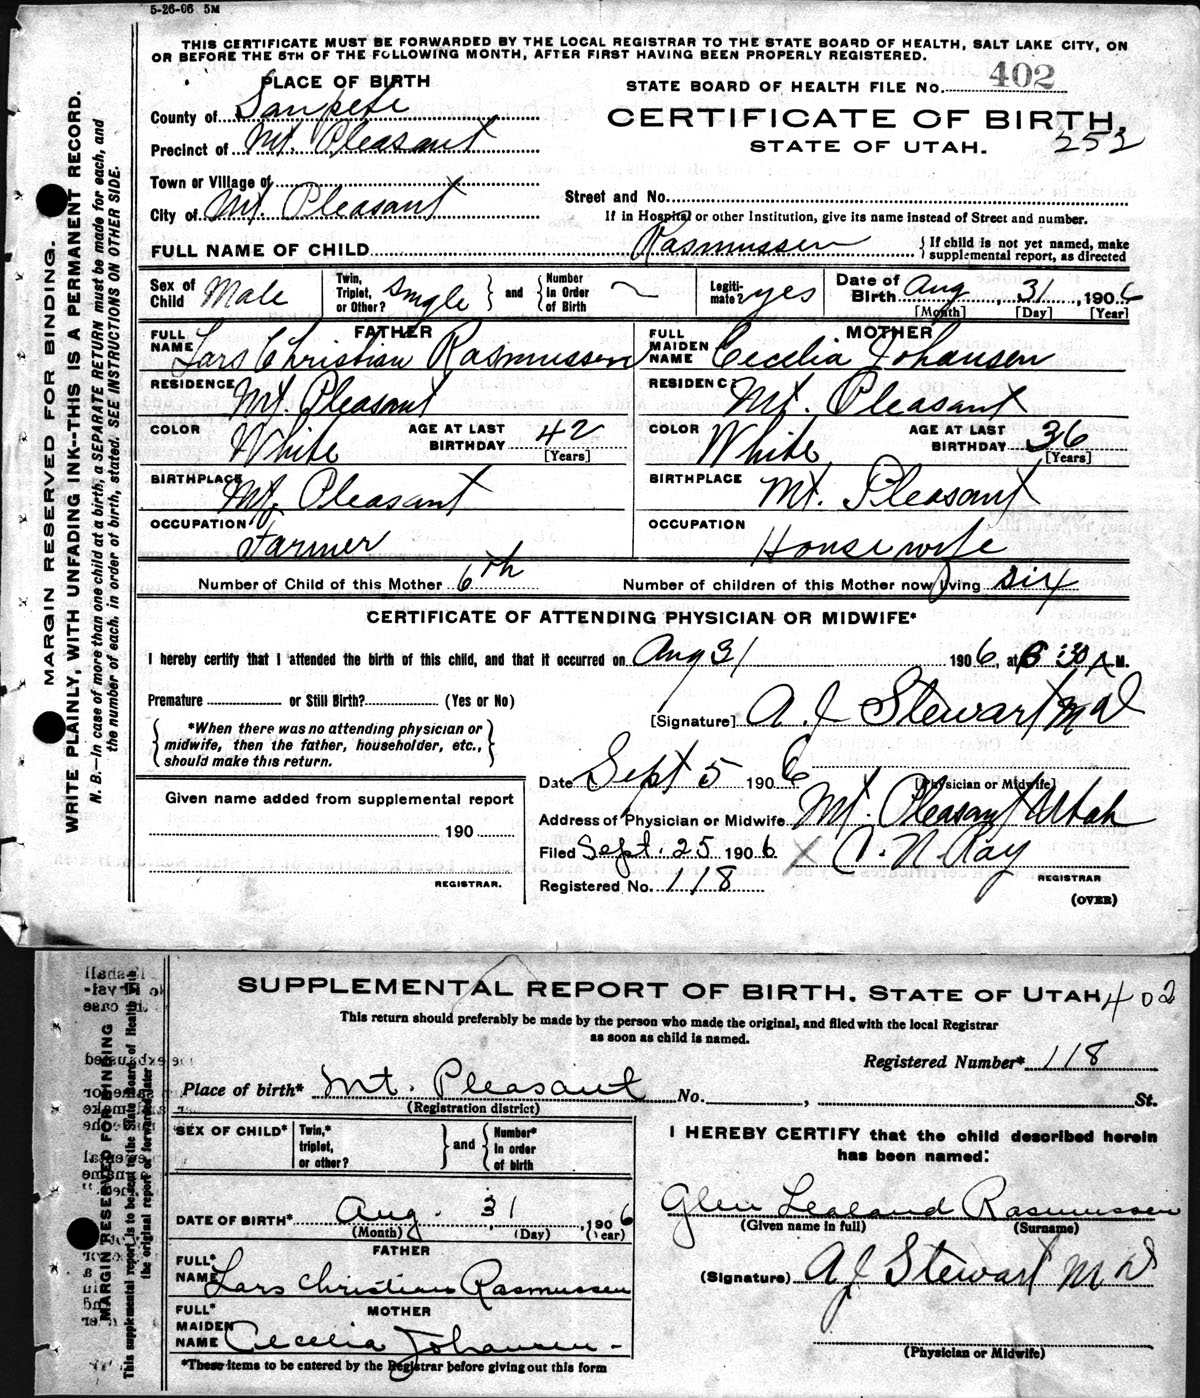 5-26-06 5M
THIS CERTIFICATE MUST BE FORWARDED BY THE LOCAL REGISTRAR TO THE STATE BOARD OF HEALTH, SALT LAKE CITY, ON
OR BEFORE THE 5TH OF THE FOLLOWING MONTH, AFTER FIRST HAVING BEEN PROPERLY REGISTERED.
PLACE OF BIRTH
STATE BOARD OF HEALTH FILE No. 402
County of Sanpete
CERTIFICATE OF BIRTH.
Precinct of Mt. Pleasant
STATE OF UTAH. 252
Town or Village of
Street and No.
City of Mt. Pleasant
If in Hospital or other Institution, give its name instead of Street and number.
FULL NAME OF CHILD Rasmussen
{ If child is not yet named, make
supplemental report, as directed
Sex of Child Male
Twin, Triplet, or Other? Single } and { Number In Order of Birth
Legitimate? yes
Date of Birth Aug, 31, 1906
[Month] [Day] [Year]
FATHER
FULL NAME Lars Christian Rasmussen
RESIDENCE Mt. Pleasant
COLOR White AGE AT LAST BIRTHDAY 42 [Years]
BIRTHPLACE Mt. Pleasant
OCCUPATION Farmer
MOTHER
FULL MAIDEN NAME Cecelia Johansen
RESIDENCE Mt. Pleasant
COLOR White AGE AT LAST BIRTHDAY 36 [Years]
BIRTHPLACE Mt. Pleasant
OCCUPATION Housewife
Number of Child of this Mother 6th Number of children of this Mother now living six
CERTIFICATE OF ATTENDING PHYSICIAN OR MIDWIFE*
I hereby certify that I attended the birth of this child, and that it occurred on Aug 31 1906, at 6:30 A M.
Premature or Still Birth? (Yes or No)
[Signature] A. J. Stewart M D
{ *When there was no attending physician or
midwife, then the father, householder, etc.,
should make this return. }
Date Sept 5 1906
[Physician or Midwife]
Given name added from supplemental report
190
REGISTRAR.
Address of Physician or Midwife Mt. Pleasant Utah
Filed Sept. 25 1906 X N. Ray
REGISTRAR
Registered No. 118
(OVER)
MARGIN RESERVED FOR BINDING.
WRITE PLAINLY, WITH UNFADING INK--THIS IS A PERMANENT RECORD.
N. B.—In case of more than one child at a birth, a SEPARATE RETURN must be made for each, and
the number of each, in order of birth, stated. SEE INSTRUCTIONS ON OTHER SIDE.
SUPPLEMENTAL REPORT OF BIRTH. STATE OF UTAH 402
This return should preferably be made by the person who made the original, and filed with the local Registrar
as soon as child is named.
Registered Number* 118
Place of birth* Mt. Pleasant No. , St.
(Registration district)
SEX OF CHILD*
Twin,* triplet, or other? } and { Number* In order of birth
DATE OF BIRTH* Aug. 31, 1906
(Month) (Day) (Year)
FATHER
FULL* NAME Lars Christian Rasmussen
MOTHER
FULL* MAIDEN NAME Cecelia Johansen -
*These items to be entered by the Registrar before giving out this form
I HEREBY CERTIFY that the child described herein
has been named:
Glen Lealand Rasmussen
(Given name in full) (Surname)
(Signature) A J Stewart M D
(Physician or Midwife)
MARGIN RESERVED FOR BINDING
This supplemental report is to be sent to the State Board of Health with
the original report if forwarded later